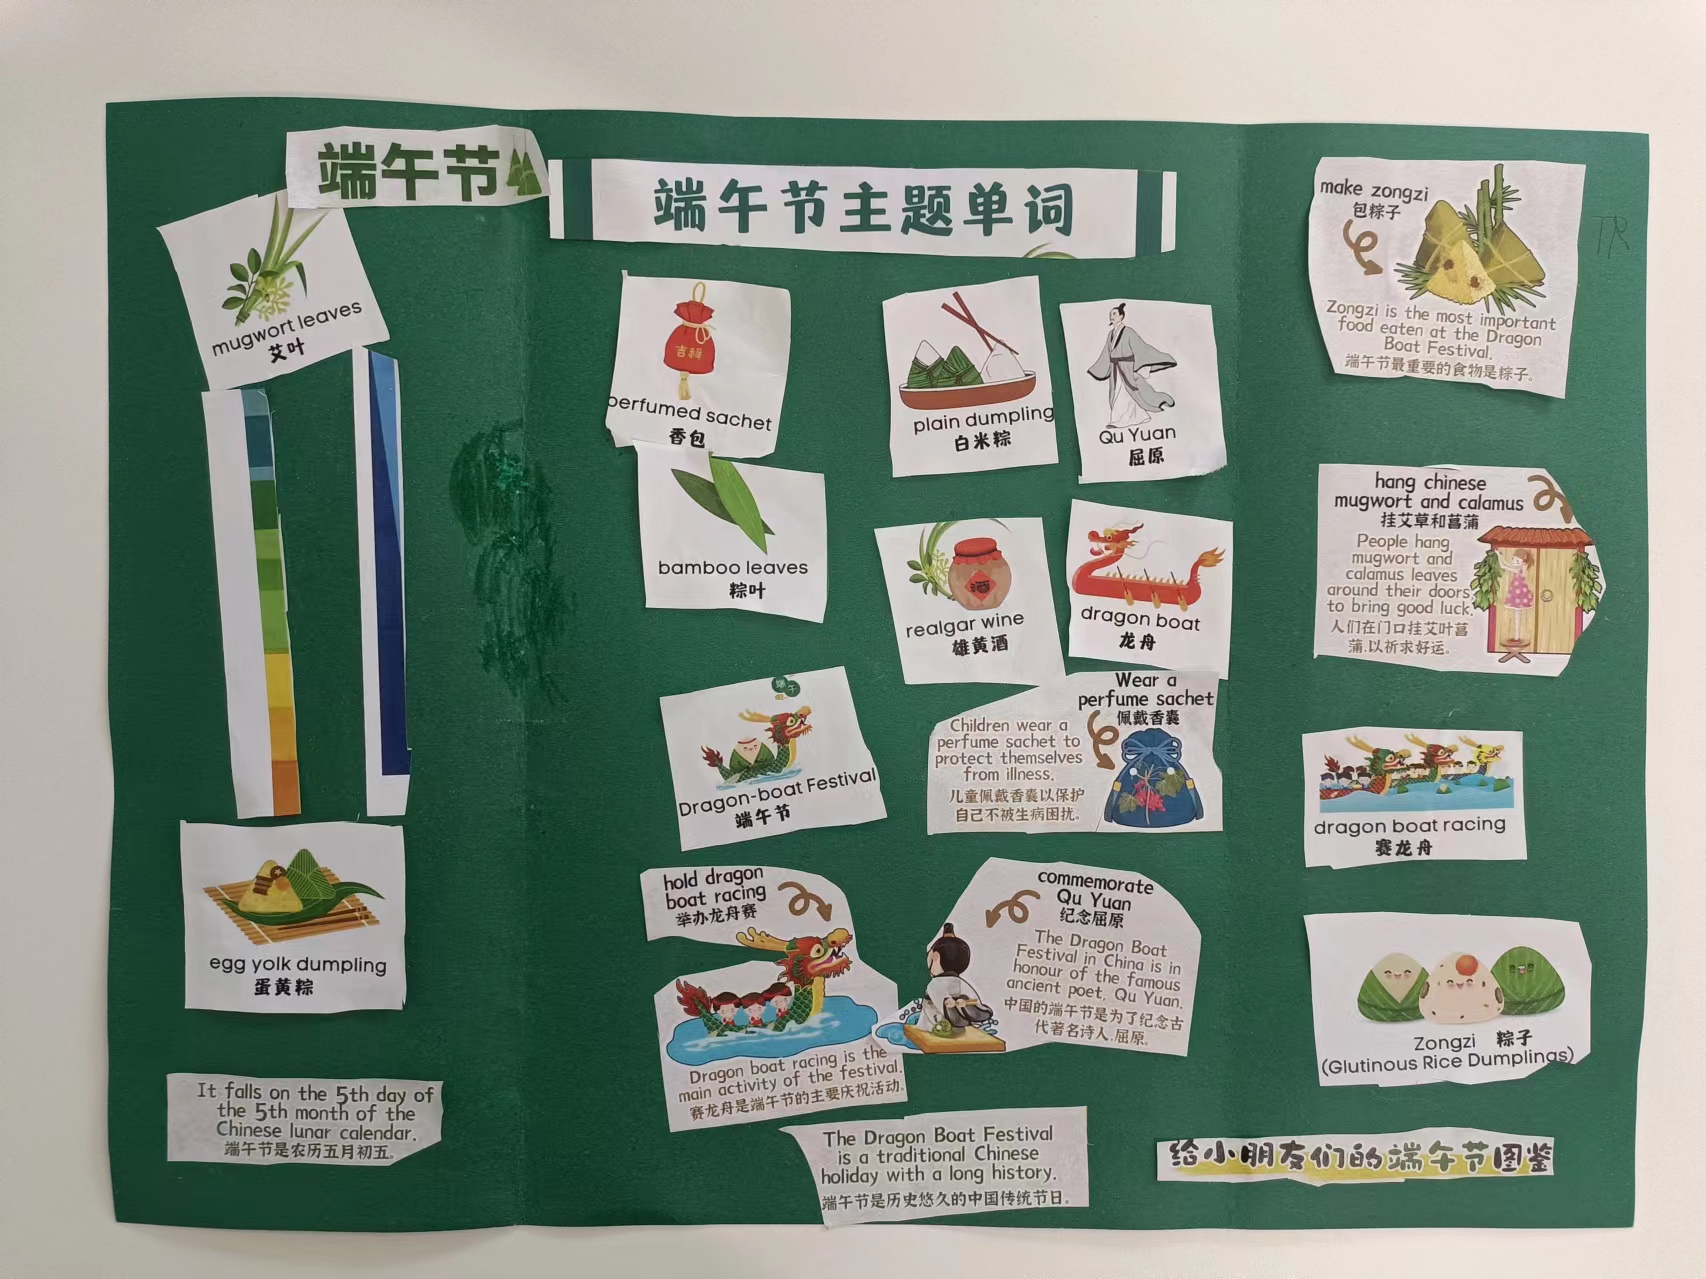 端午节
mugwort leaves
艾叶
egg yolk dumpling
蛋黄粽
It falls on the 5th day of
the 5th month of the
Chinese lunar calendar.
端午节是农历五月初五。
端午节主题单词
perfumed sachet
吉祥
香包
plain dumpling
白米粽
Qu Yuan
屈原
bamboo leaves
粽叶
酒
realgar wine
雄黄酒
dragon boat
龙舟
端午
Dragon-boat Festival
端午节
Wear a
perfume sachet
佩戴香囊
Children wear a
perfume sachet to
protect themselves
from illness.
儿童佩戴香囊以保护
自己不被生病困扰。
hold dragon
boat racing
举办龙舟赛
Dragon boat racing is the
main activity of the festival.
赛龙舟是端午节的主要庆祝活动。
commemorate
Qu Yuan
纪念屈原
The Dragon Boat
Festival in China is in
honour of the famous
ancient poet, Qu Yuan.
中国的端午节是为了纪念古
代著名诗人,屈原。
The Dragon Boat Festival
is a traditional Chinese
holiday with a long history.
端午节是历史悠久的中国传统节日。
make zongzi
包粽子
Zongzi is the most important
food eaten at the Dragon
Boat Festival.
端午节最重要的食物是粽子。
TR
hang chinese
mugwort and calamus
挂艾草和菖蒲
People hang
mugwort and
calamus leaves
around their doors
to bring good luck.
人们在门口挂艾叶菖
蒲,以祈求好运。
dragon boat racing
赛龙舟
Zongzi 粽子
(Glutinous Rice Dumplings)
给小朋友们的端午节图鉴